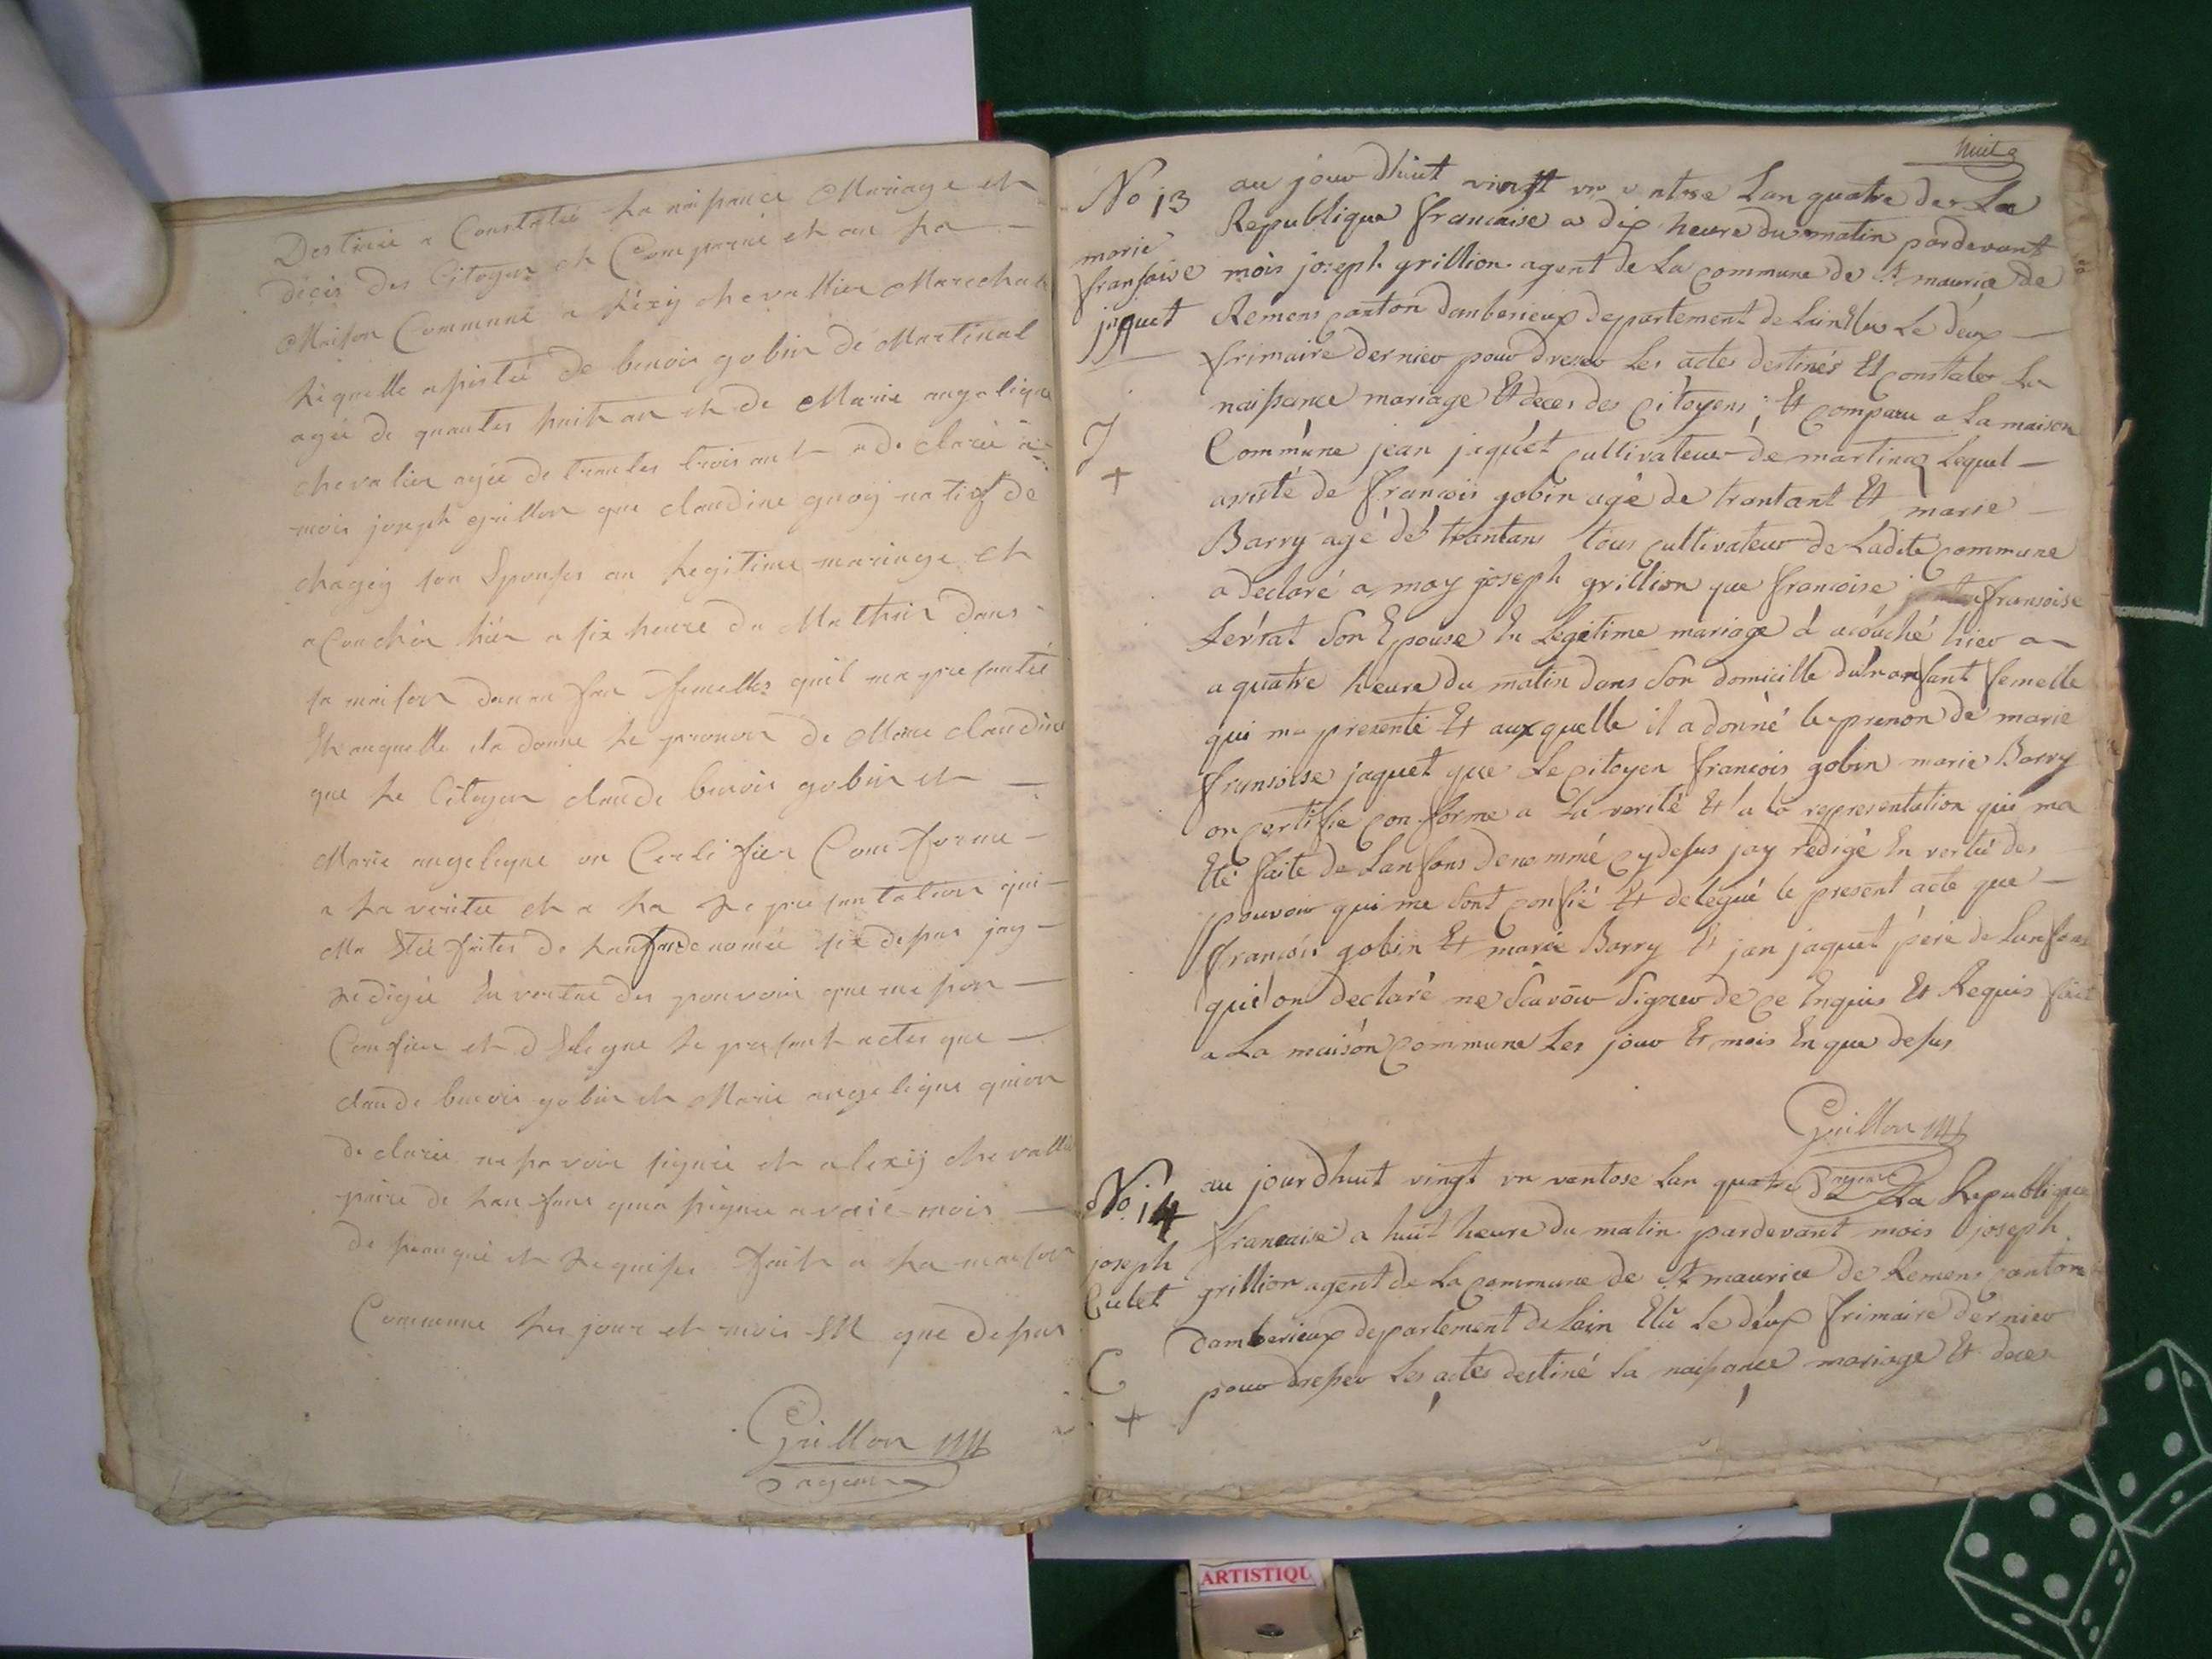 Destinée a Constatée La naissance Mariage et
décis des Citoyen et Comparue et au La
Maison Commune alexy chevallier Marechal
Lequelle assistée de benois gobin de Martinat
agée de quantes huit an et de Marie angelique
chevalier agée de trantes trois ant a declarée a
mois joseph grillon que claudine guoy natif de
chagey son Epouses an Legitime mariage et
acouchér hiér a six heure du Mathin dans
sa maison dunanfan femelles quil ma presantée
Et auquelle ila donne Le pronon de Marie claudine
que Le Citoyen claude benois gobin et
Marie angelique on Certifier Comforme
a La veritée et a La Represantation qui
Ma Etée faites de Lanfandenomée sidessus jay
redigée En vertue des pouvoir que me son
Confier et delegue Le presant actes que
claude benois gobin et Marie angelique quion
declarée nesavoir signée et alexy chevallie
paire de Lanfans quia signée avaic mois
de senquie et Requises fait a La maison
Commune Les jour et mois En que dessus
Grillon
agent
huit
No 13
marie
fransoise
jaquet
J
+
au jourdhuit vingt un ventose Lan quatre de La
Republique francaise a dix heure du matin pardevant
mois joseph grillion agent de La commune de St maurice de
Remens canton damberieux departement de Lain Elus Le deux
frimaire dernier pour dresser Les actes destinés Et constater La
naissance mariage Et deces des citoyens; Et comparu a La maison
Commune jean jaquet cultivateur de martinaz Lequel
assisté de francois gobin agé de trantant Et marie
Barry agé de trantans tous cultivateur de Ladite commune
a declaré a moy joseph grillion que francoise fransoise
Serrat Son Epouse En Legitime mariage à acouché hier a
a quatre heure du matin dans Son domicille dunanfant femelle
qui ma presenté Et auxquelle il a donné le prenon de marie
fransoise jaquet que Le citoyen francois gobin marie Barry
on certifie conforme a La verité Et a la representation qui ma
Eté faite de Lanfans denommé cydesus jay redigé En vertu des
pouvoir qui me Sont confié Et delegué le present acte que
francois gobin Et marie Barry Et jan jaquet pere de Lanfans
qui on declaré ne Scavoir Signer de ce Enquis Et Requis fait
a La maison commune Les jour Et mois En que desus
Grillon
agent
No 14
joseph
Culet
C
+
au jourdhuit vingt un ventose Lan quatre de La Republique
francaise a huit heure du matin pardevant mois joseph
grillion agent de La commune de St maurice de Remens canton
damberieux departement de Lain Elu Le deux frimaire dernier
pour dresser Les actes destiné La naissance mariage Et deces
ARTISTIQU